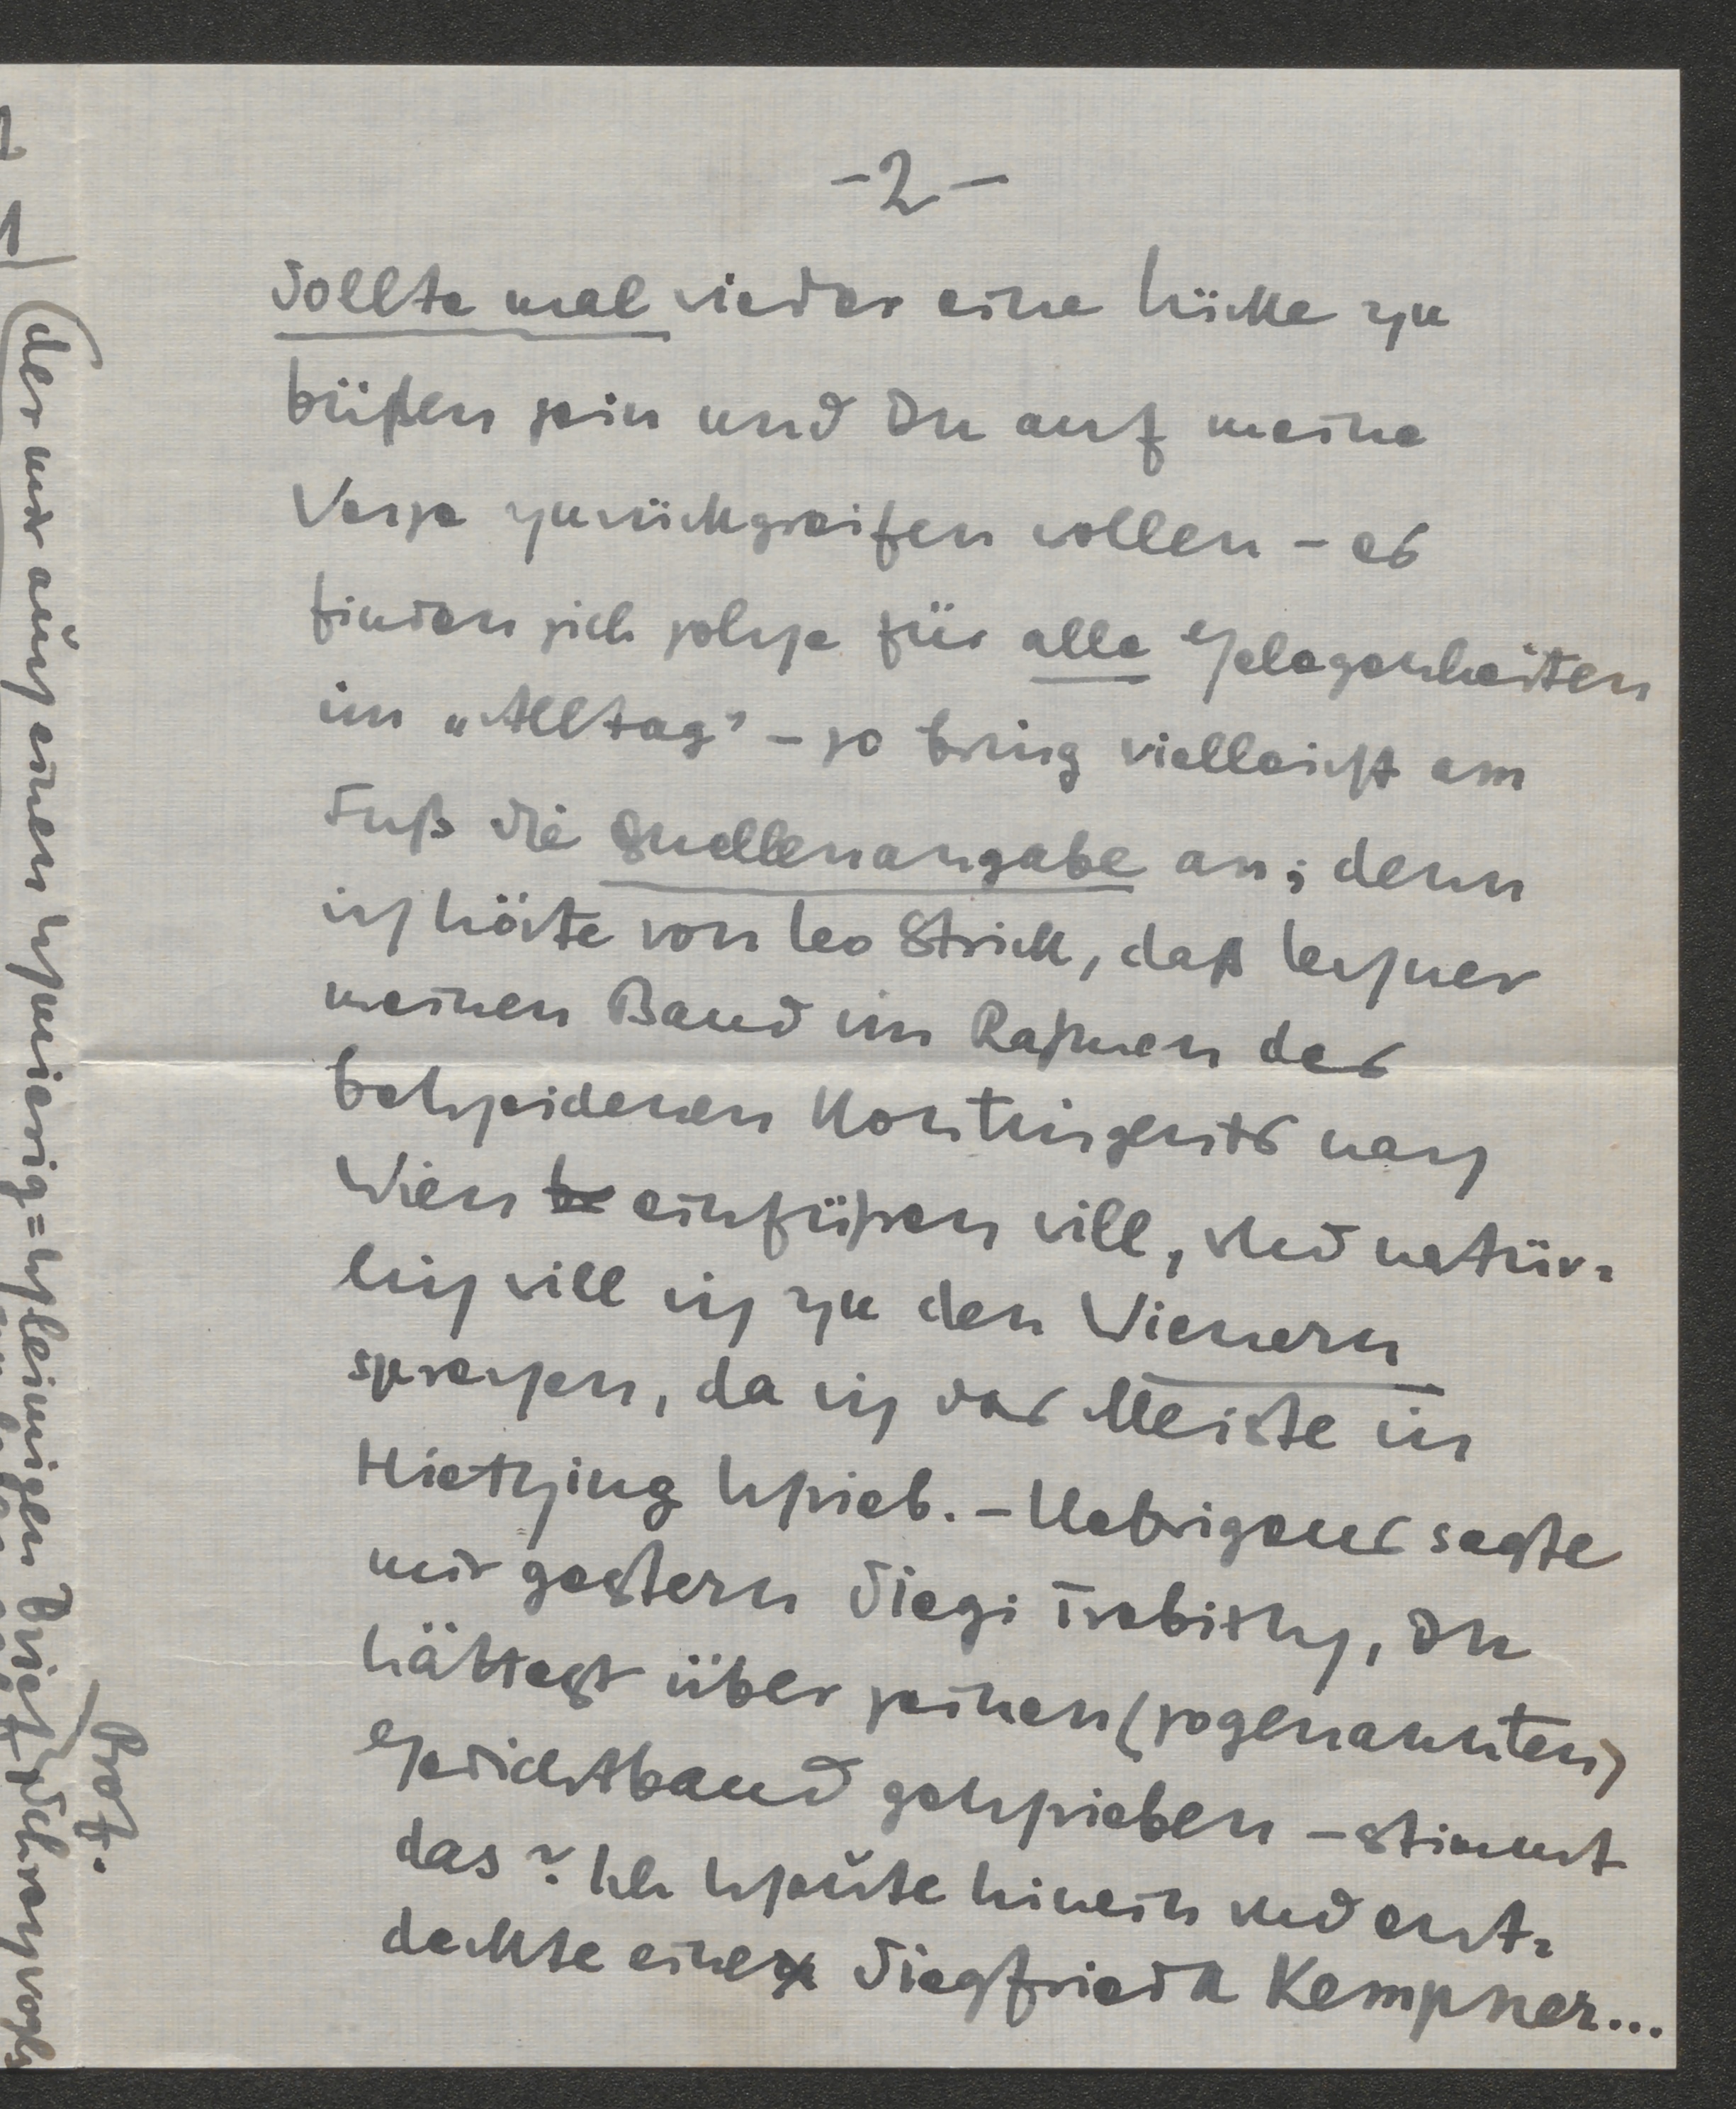 -2-
Sollte mal wieder eine Lücke zu
büßen sein und Du auf meine
Verse zurückgreifen wollen - es
finden sich solche für alle Gelegenheiten
im „Alltag" - so bring vielleicht am
Fuß die Quellenangabe an; denn
ich hörte von Leo Strick, daß Lechner
meinen Band im Rahmen des
bescheidenen Kontingents nach
Wien be einführen will, und natür-
lich will ich zu den Wienern
sprechen, da ich das Meiste in
Hietzing schrieb. - Uebrigens sagte
mir gestern Siegi Trebitsch, Du
hättest über seinen (sogenannten)
Gedichtband geschrieben - stimmt
das? Ich schaute hinein und ent-
deckte eine Siegfrieda Kempner...
(der nur auch einen schmierig=schleimigen Brief schrieb)